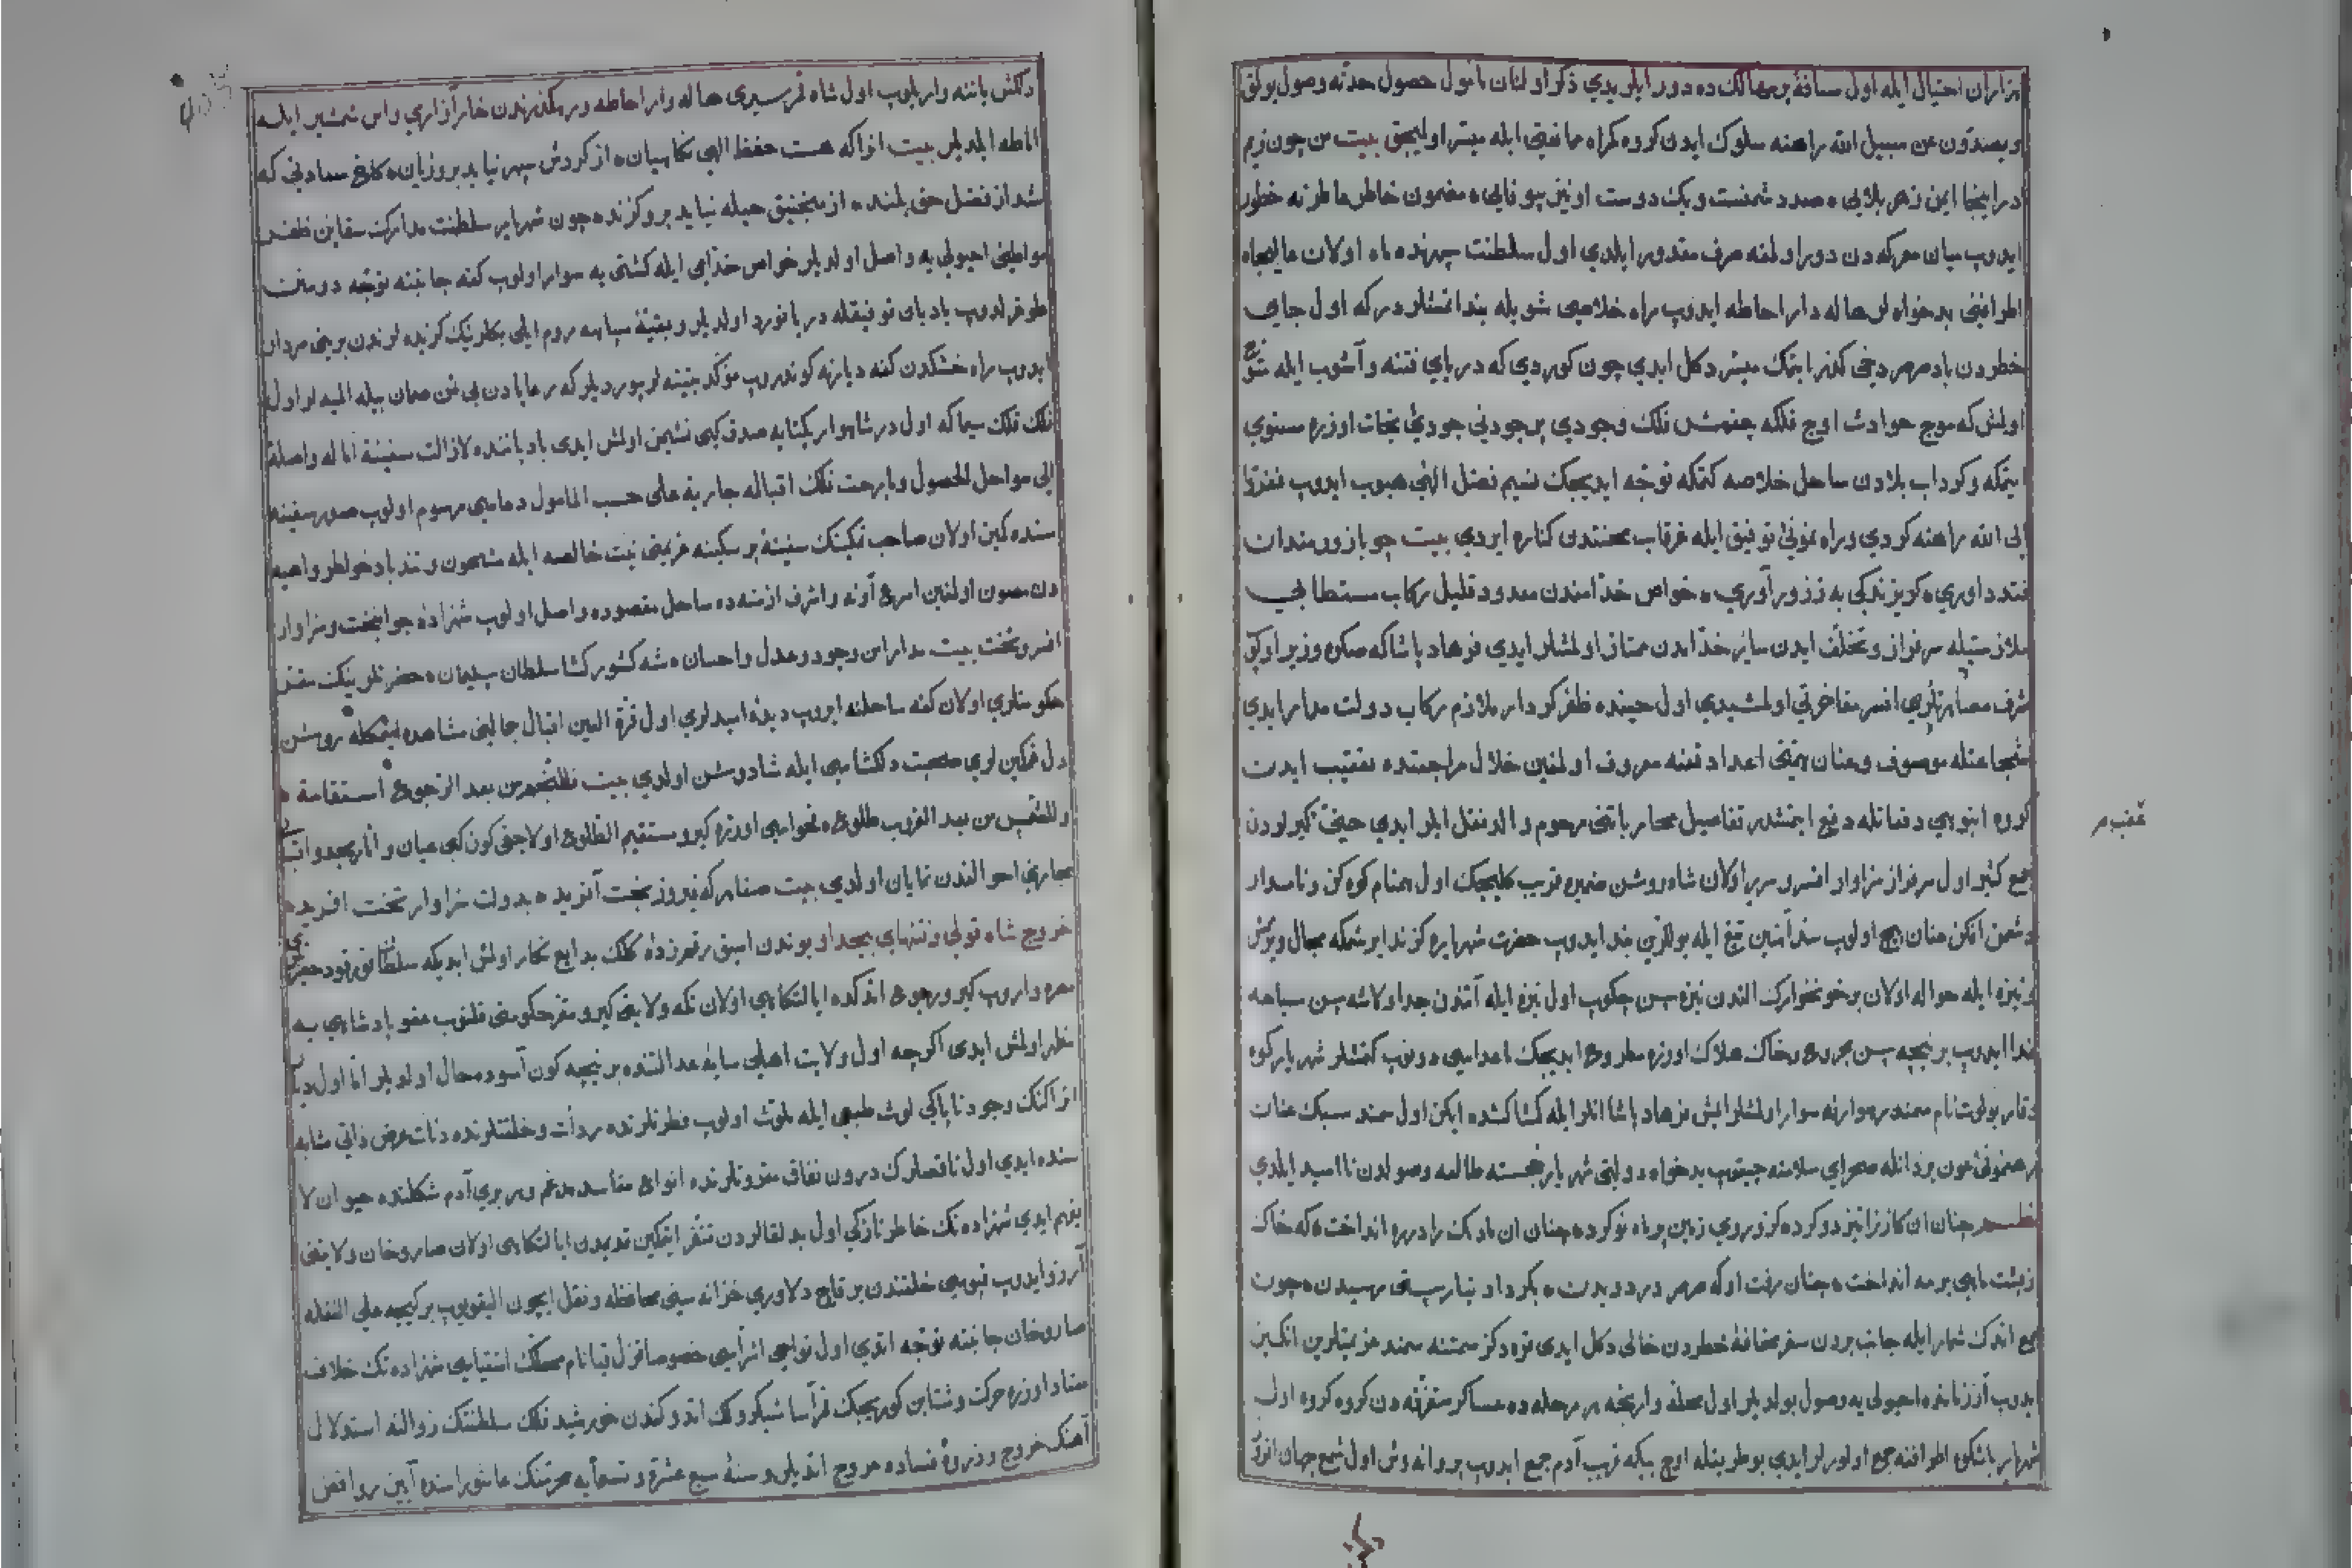 هزاران احتیال ایله اول مسافهٔ پر مهالک ده دور ایلر یدی ذکر اولنان مأمول حصول حدنه وصول بولیق
و یصدون عن سبیل الله راهنه سلوک ایدن کروه کمراه ممانعتی ایله میسر اولیجق بیت من چون زیم
در اینجا ایمن زهر بلایی صد دشمنست و یک دوست او نیز بیوفایی مضمون خاطر عاطرنه خطور
ایدوب میان معرکه دن دور اولمغه صرف مقدور ایلدی اول سلطنت سپهرنده ماه اولان عالیجاه
اطرافنی بدخواهلر هاله وار احاطه ایدوب راه خلاصی شویله بند اتمشلر در که اول جای
خطردن باد صرصر دخی کذر ایتمک میسر دکل ایدی چون کوردی که دریای فتنه و آشوب ایله
اولمش که موج حوادث اوج فلکه چقمش فلک وجودی پر جودنی جودیٔ نجات اوزره مستوی
ایتمکه و کرداب بلادن ساحل خلاصه کتمکه توجه ایدیجک نسیم فضل الهی هبوب ایدوب ففروا
الی الله راهنه کردی و راه نمونیٔ توفیق ایله غرقاب محنتدن کناره ایردی بیت چو باز ورمندان
فتد داوری کریزندکی به ز زورآوری خواص خدامندن معدود قلیل رکاب مستطابی
ملازمتیله سرفراز و تخلف ایدن سایر خدامدن ممتاز اولمشلر ایدی فرهاد پاشا که صکره وزیر اولوب
شرف مصاهرتلری افسر مفاخرتی اولمشیدی اول حینده ظفر کردار ملازم رکاب دولت مدار ایدی
شجاعتله موصوف و عنان همتی اعداد فتنه معروف اولمغین خلال مراجعتده تعقیب ایدن
کروه انبوهی دفعاتله دفع ایتمشدر تفاصیل محارباتنی مرحوم والد نقل ایلر ایدی حتی کیرلودن
جمع کثیر اول سرفراز سزاوار افسر و سریر اولان شاه روشن ضمیره قریب کلیجک اول همنام کوه کن و نامدار
دشمن افکن عنان پیچ اولوب سد آهنین تیغ ایله یوللرین بند ایدوب حضرت شهریاره کزند ایرشمکه مجال ویرمش
و نیزه ایله حواله اولان بر خونخوارک الندن نیزه سن چکوب اول نیزه ایله آتندن جدا ولاشه سن سباعه
غدا ایدوب بر نیجه سن مجروح و خاک هلاک اوزره مطروح ایدیجک اعداسی دونوب کتمشلر شهریار کوه
وقار بولوت نام سمند رهوارنه سوار اولمشلرایمش فرهاد پاشا انلر ایله کشاکشده ایکن اول سمند سبک عنان
رهنمونیٔ عون یزدانله صحرای سلامته چیقوب بدخواه دولتی شهریار خجسته طالعه وصولدن ناامید ایلدی
زپشت ماهی بر مه انداخت چنان رفت او که صرصر در دویدن بکرد او نیارستی رسیدن چون
جمع اندک شمار ایله جانب بردن سفر مخافهٔ خطردن خالی دکل ایدی قره دکز سمتنه سمند عزیمتلرین انکیز
ایدوب آز زمانده احیولی یه وصول بولدیلر اول محله وارنجه هر مرحله ده عساکر متفرقه دن کروه کروه اول
شهریار باشکوه اطرافنه جمع اولورلر ایدی بو طریقله اوچ بیکه قریب آدم جمع ایدوب پروانه وش اول شمع جهان افروز
عقب
دلکش یاننه واریلوب اول شاه قمر سیری هاله وار احاطه و رهکذرندن خار آزاری داس شمشیر ایله
اماطه ایلدیلر بیت انرا که هست حفظ الهی نکاهبان از کردش سپهر نیاید برو زیان کاخ سعادتی که
شد از فضل حق بلند از منجنیق حیله نیاید برو کزند چون شهریار سلطنت مدارک سفاین ظفر
مواطنی احیولی یه واصل اولدیلر خواص خدامی ایله کشتی یه سوار اولوب کفه جانبنه توجه دومنن
طوغرلدوب بادبان توفیقله دریانورد اولدیلر و بقیهٔ سپاهه روم ایلی بکلرینک کزیده لرندن برینی سردار
ایدوب راه خشکدن کفه دیارنه کوندروب مؤکد تنبیهلر بیوردیلر که رعایادن بی ثمن صمان بیله المیه لر اول
فلک فلک سیما که اول در شاهوار یکتایه صدف کبی نشیمن اولمش ایدی بادبانده لازالت سفینة اماله واصلة
الی سواحل الحصول وما برحت فلک اقباله جاریة علی حسب المامول دعاسی مرسوم اولوب صدر سفینه
سنده مکین اولان صاحب تمکینک سفینهٔ پر سکینه عزیمتی نیت خالصه ایله مشحون و تندباد خواطر واهیه
دن مصون اولمغین اسرع آونه و اشرف ازمنه ده ساحل مقصوده واصل اولوب شهزادهٔ جوانبخت و سزاوار
افسر و تخت بیت مدار امن وجود و عدل و احسان شه کشورکشا سلطان سلیمان حضرتلرینک مقر
حکومتلری اولان کفه ساحلنه ایروب دیدهٔ امیدلری اول قرة العین اقبال جمالنی مشاهده ایتمکله روشن
دل غمکین لری صحبت دلکشاسی ایله شاد و شن اولدی بیت فللنجم من بعد الرجوع استقامة
و للشمس من بعد الغروب طلوع فحواسی اوزره کیرو مستقیم الطلوع اولاجغی کون کبی عیان و آثار مجد و اقبال
مجاری احوالندن نمایان اولدی بیت صفاهر که فیروز بخت آفرید بدولت سزاوار تخت افرید
خروج شاه قولی و فتنهای بیحد او بوندن اسبق رقمزدهٔ کلک بدایع نکار اولمش ایدیکه سلطان قورقود حضرتلری
مصره واروب کیرو رجوع اتدکده ایالتکاهی اولان تکه ولایتی کیرو مقر حکومتی قلنوب عفو پادشاهی یه
مظهر اولمش ایدی اکرچه اول ولایت اهلی سایهٔ عدالتنده بر نیجه کون آسوده حال اولدیلر اما اول
اتراکنک وجود ناپاکی لوث طبیعی ایله ملوث اولوب فطرتلرنده ردائت و خلقتلرنده دنائت عرض ذاتی مثابه
سنده ایدی اول ناقصلرک درون نفاق مقرونلرنده انواع مفاسد مدغم و هر بری آدم شکلنده حیوان لا
یفهم ایدی شهزاده نک خاطر نازکی اول بد لقالردن تنفر ایتمکین قدیمدن ایالتکاهی اولان صاروخان ولایتنی
آرزو ایدوب قپوسی خلقندن بر قاچ دلاوری خزانه سینی محافظه و نقل ایچون الیقویوب بر کیجه علی الغفله
صاروخان جانبنه توجه اتدی اول نواحی اشراری خصوصا قزل قیا نام محلک اشقیاسی شهزاده نک خلاف
معتاد اوزره حرکت و شتابن کوریجک فرآسا شبکروکک اتدوکندن خورشید فلک سلطنتک زوالنه استدلال
آهنک خروج و ذروهٔ فساده عروج اتدیلر و سنهٔ سبع عشرة و تسعمایه محرمنک عاشوراسنده آیین روافض